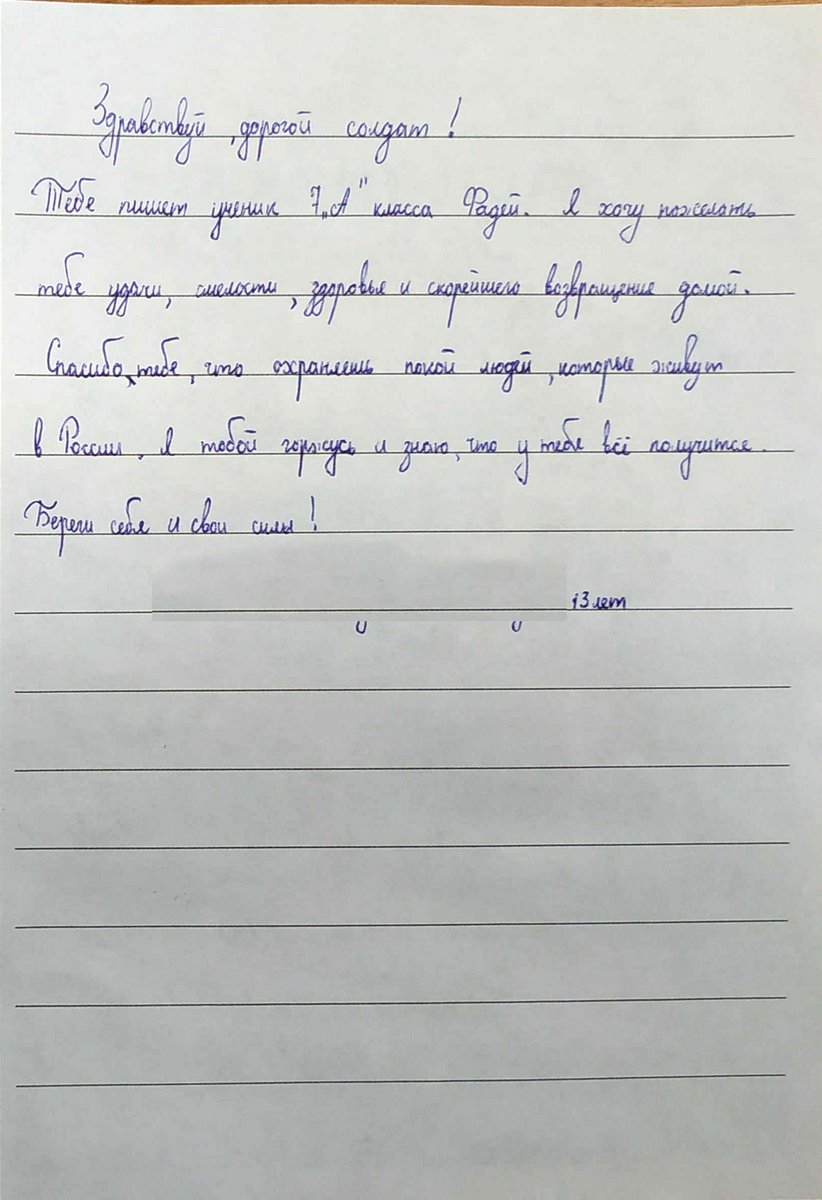 Здравствуй, дорогой солдат!
Тебе пишет ученик 7 „А" класса Фадей. Я хочу пожелать
тебе удачи, смелости, здоровья и скорейшего возвращение домой.
Спасибо, тебе, что охраняешь покой людей, которые живут
в России. Я тобой горжусь и знаю, что у тебя всё получится.
Береги себя и свои силы!
13 лет